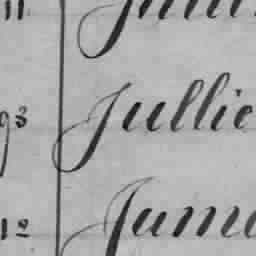 11
93 Jullie
12 Jume